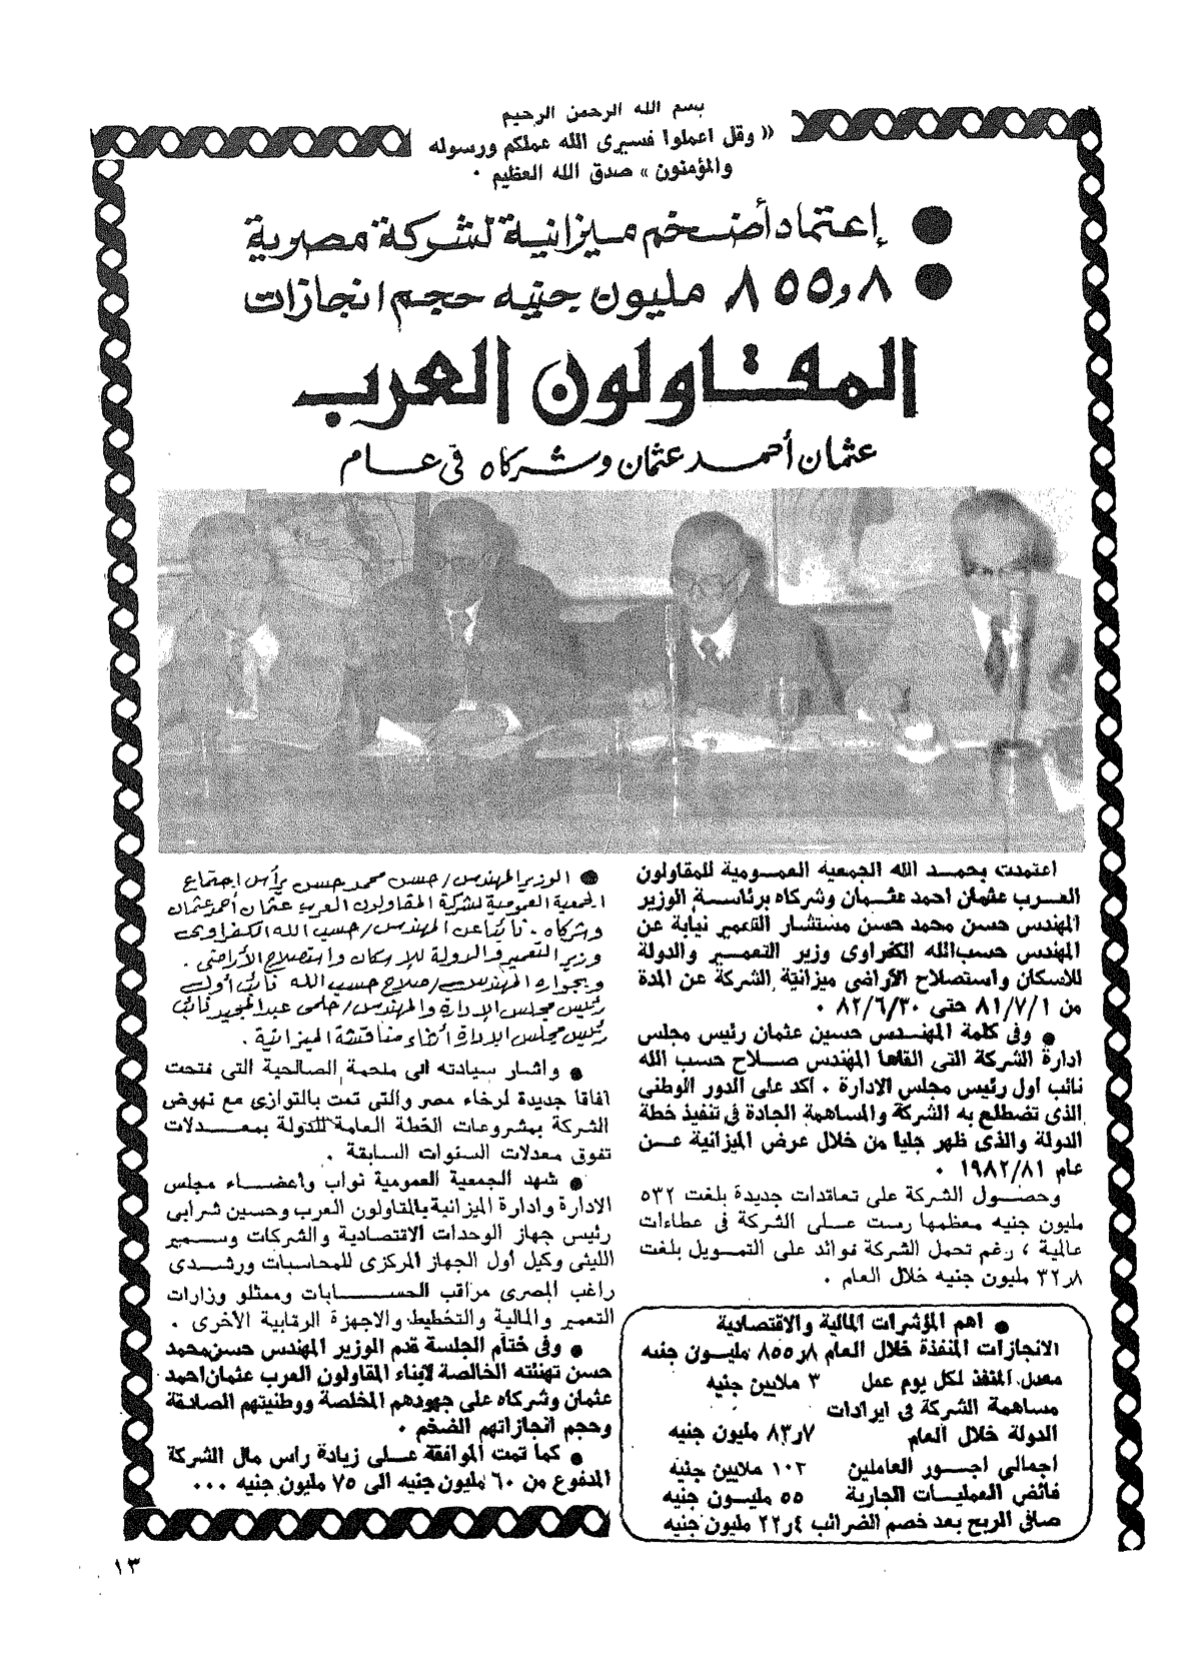 بسم الله الرحمن الرحيم
« وقل اعملوا فسيرى الله عملكم ورسوله
والمؤمنون » صدق الله العظيم .
● إعتماد أضخم ميزانية لشركة مصرية
● ٨ر٨٥٥ مليون جنيه حجم انجازات
المقاولون العرب
عثمان أحمد عثمان وشركاه فى عام
اعتمدت بحمد الله الجمعية العمومية للمقاولون
العرب عثمان احمد عثمان وشركاه برئاسة الوزير
المهندس حسن محمد حسن مستشار التعمير نيابة عن
المهندس حسب الله الكفراوى وزير التعمير والدولة
للاسكان واستصلاح الأراضى ميزانية الشركة عن المدة
من ٨١/٧/١ حتى ٨٢/٦/٣٠ .
● وفى كلمة المهندس حسين عثمان رئيس مجلس
ادارة الشركة التى القاها المهندس صلاح حسب الله
نائب اول رئيس مجلس الادارة . اكد على الدور الوطنى
الذى تضطلع به الشركة والمساهمة الجادة فى تنفيذ خطة
الدولة والذى ظهر جليا من خلال عرض الميزانية عن
عام ١٩٨٢/٨١ .
وحصول الشركة على تعاقدات جديدة بلغت ٥٣٢
مليون جنيه معظمها رست على الشركة فى عطاءات
عالمية ، رغم تحمل الشركة فوائد على التمويل بلغت
٨ر٣٢ مليون جنيه خلال العام .
● اهم المؤشرات المالية والاقتصادية
الانجازات المنفذة خلال العام ٨ر٨٥٥ مليون جنيه
معدل المنفذ لكل يوم عمل ٣ ملايين جنيه
مساهمة الشركة فى ايرادات
الدولة خلال العام ٧ر٨٣ مليون جنيه
اجمالى اجور العاملين ١٠٢ ملايين جنيه
فائض العمليات الجارية ٥٥ مليون جنيه
صافى الربح بعد خصم الضرائب ٤ر٢٢ مليون جنيه
● الوزير المهندس / حسن محمد حسن يرأس اجتماع
الجمعية العمومية لشركة المقاولون العرب عثمان أحمد عثمان
وشركاه . نائبا عن المهندس / حسب الله الكفراوى
وزير التعمير والدولة للإسكان واستصلاح الأراضى .
وبجواره المهندس / صلاح حسب الله نائب أول
رئيس مجلس الإدارة والمهندس / حلمى عبد المجيد نائب
رئيس مجلس الإدارة أثناء مناقشة الميزانية .
● واشار سيادته الى ملحمة الصالحية التى فتحت
آفاقا جديدة لرخاء مصر والتى تمت بالتوازى مع نهوض
الشركة بمشروعات الخطة العامة للدولة بمعدلات
تفوق معدلات السنوات السابقة .
● شهد الجمعية العمومية نواب واعضاء مجلس
الادارة وادارة الميزانية بالمقاولون العرب وحسين شرابى
رئيس جهاز الوحدات الاقتصادية والشركات وسمير
الليثى وكيل أول الجهاز المركزى للمحاسبات ورشدى
راغب المصرى مراقب الحسابات وممثلو وزارات
التعمير والمالية والتخطيط والاجهزة الرقابية الأخرى .
● وفى ختام الجلسة قدم الوزير المهندس حسن محمد
حسن تهنئته الخالصة لابناء المقاولون العرب عثمان احمد
عثمان وشركاه على جهودهم المخلصة ووطنيتهم الصادقة
وحجم انجازاتهم الضخم .
● كما تمت الموافقة على زيادة راس مال الشركة
المدفوع من ٦٠ مليون جنيه الى ٧٥ مليون جنيه ...
١٣